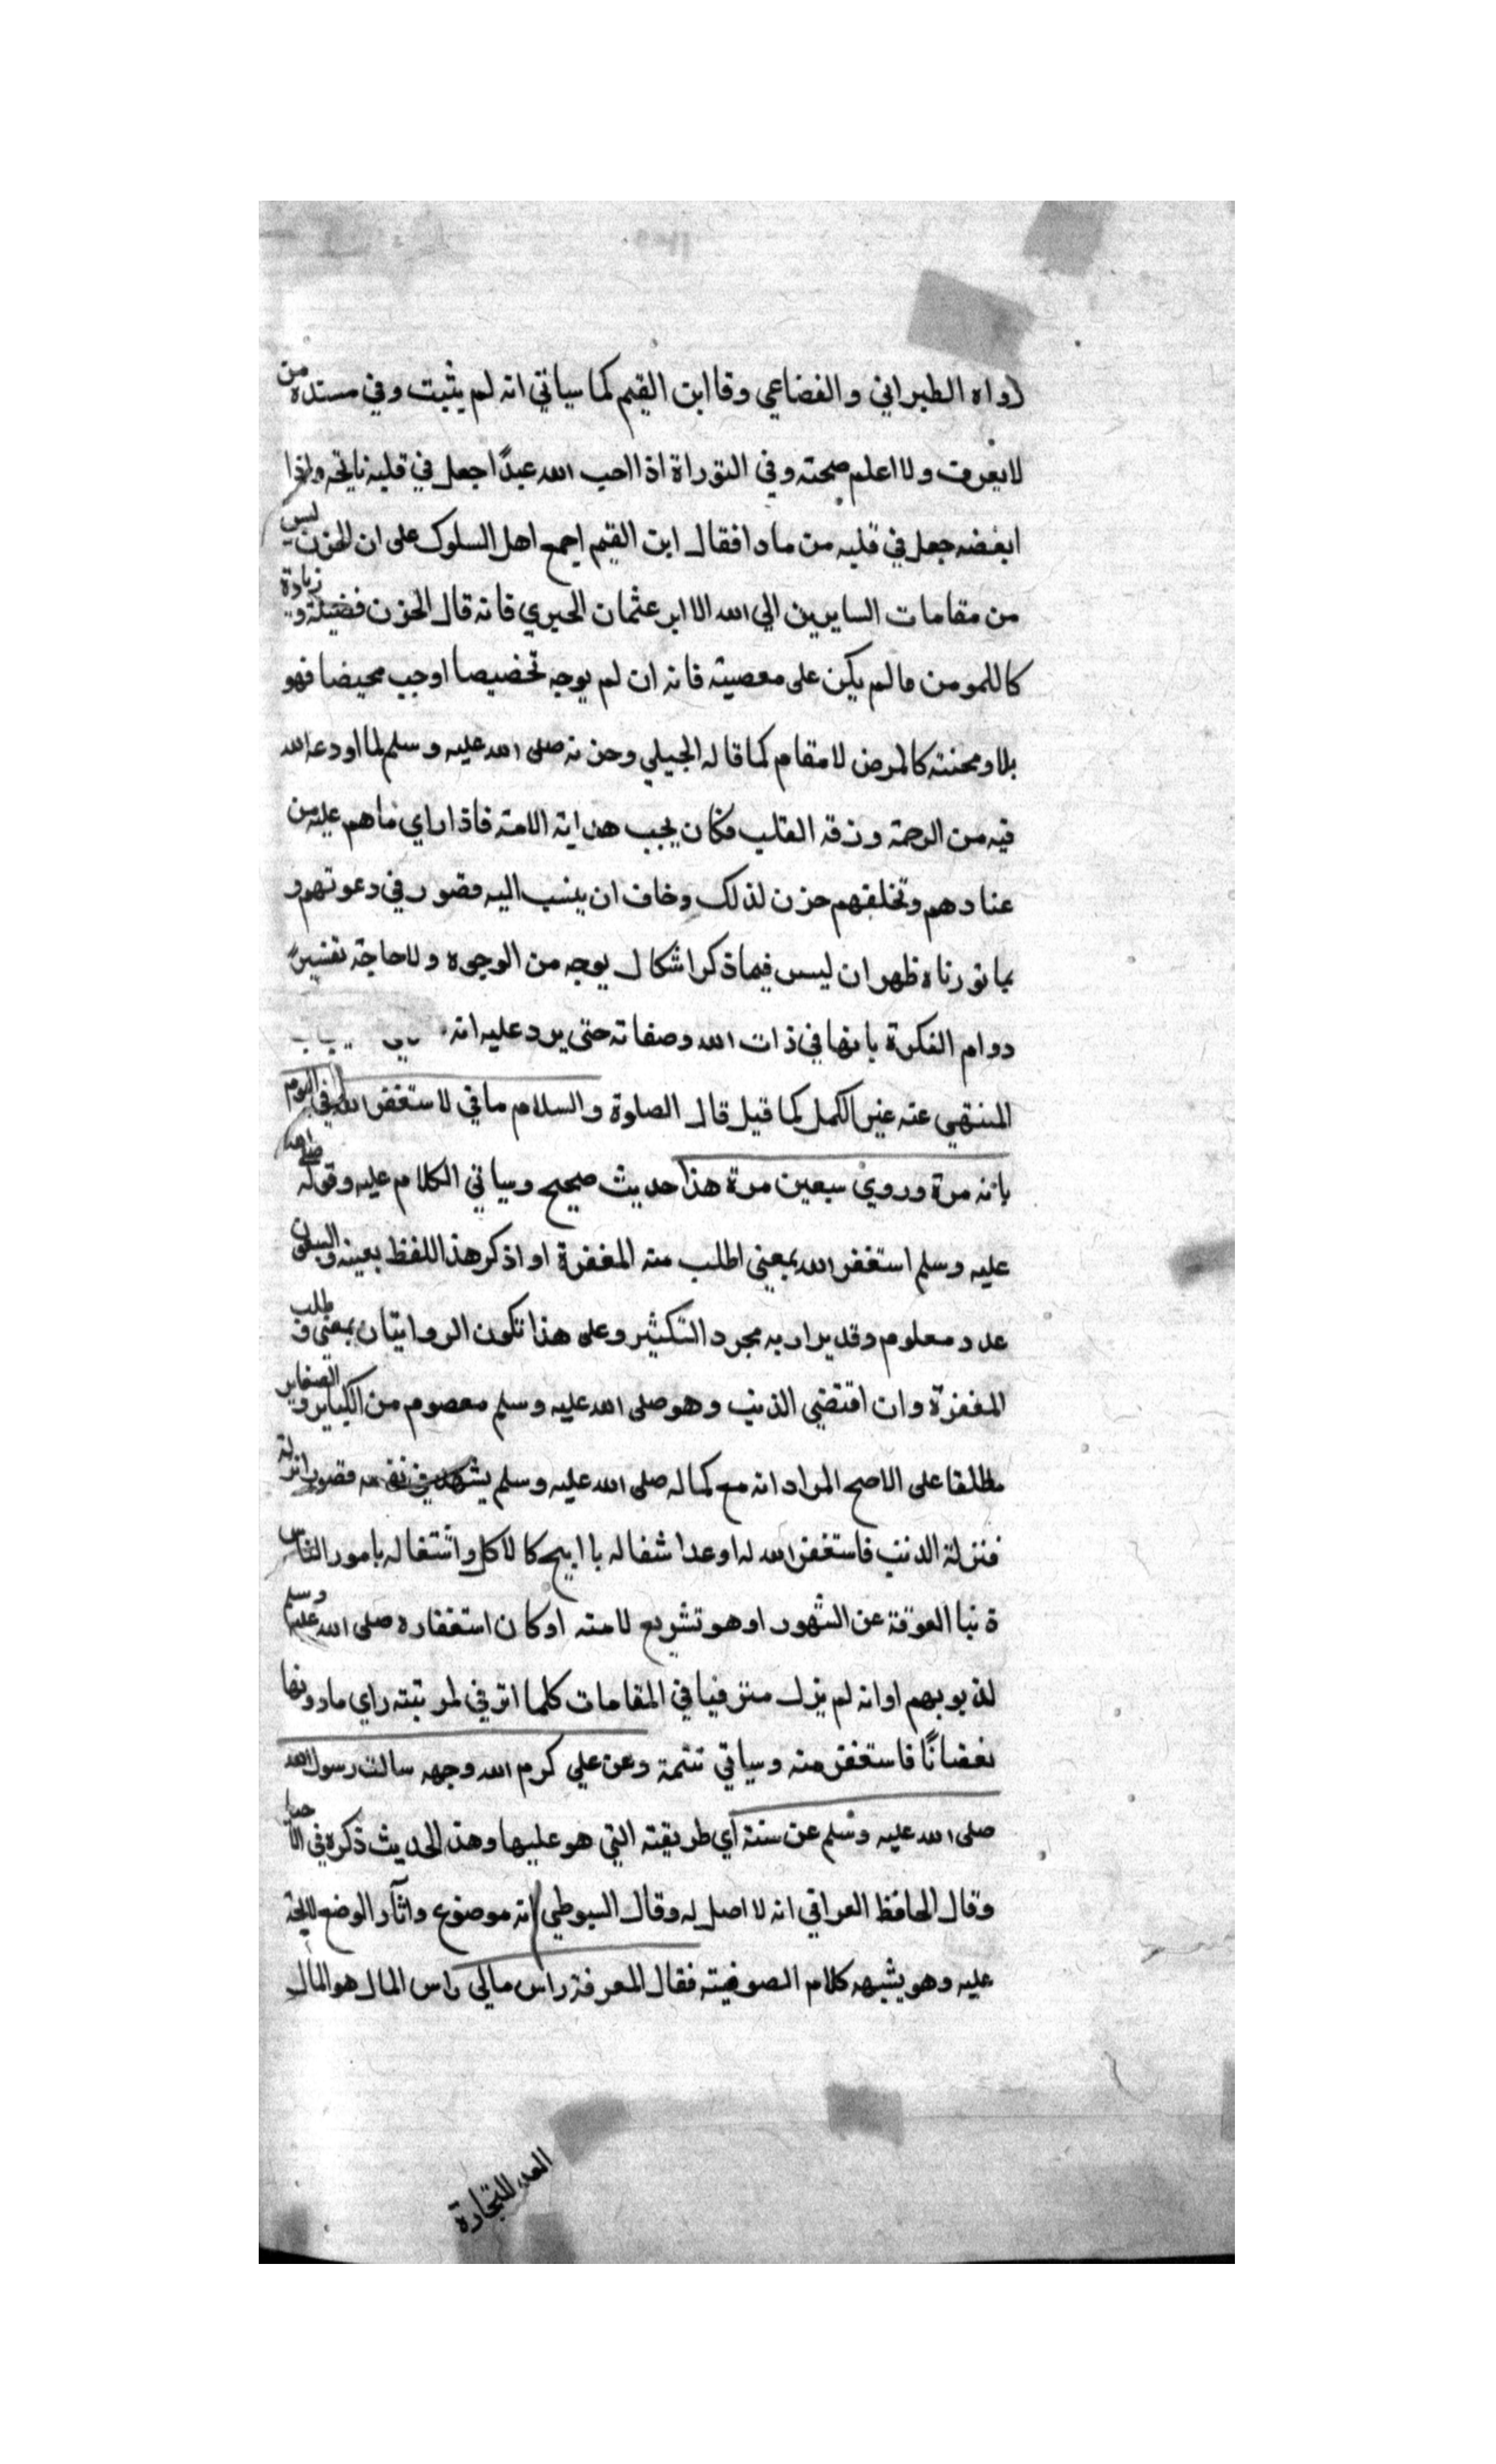 رواه الطبراني والغضاعي وقا ابن القيم كما سياتي انه لم يثبت وفي مسنده من
لا يعرف ولا اعلم صحته وفي التوراة اذا احب الله عبدًا جعل في قلبه نايحه واذا
ابغضه جعل في قلبه من مادا فقال ابن القيم اجمع اهل السلوك على ان الحزن ليس
من مقامات السايرين الي الله الا ابو عثمان الحيري فانه قال الحزن فضيلة و زيادة
كاللمومن مالم يكن على معصيته فانه ان لم يوجه تخضيصا اوجب محيضا فهو
بلا ومحنته كالمرض لا مقام كما قاله الجيلي وحزنه صلى الله عليه وسلم لما اودعه الله
فيه من الرحمة ورقه القلب فكان يحب هدايته الامته فاذا راي ماهم عليه من
عنادهم وتخلقهم حزن لذلك وخاف ان ينسب اليه قصور في دعوتهم و
بما نورناه ظهر ان ليس فيما ذكر اشكال يوجه من الوجوه ولا حاجة تفسير
دوام الفكرة بانها في ذات الله وصفاته حتى يرد عليه انه
المنتهي عنه غير الكمل كما قيل قال الصلوة والسلام ما في لاستغفر الله في اليوم
بانه مرة وروي سبعين مرة هذا حديث صحيح وسياتي الكلام عليه وقوله صلى الله
عليه وسلم استغفر الله بمعني اطلب منه المغفرة او اذكر هذا اللفظ بعينه والسبعون
عدد معلوم وقد يراد به مجرد التكثير وعلى هذا تكون الروايتان بمعني و طلب
المغفرة وان اقتضي الذنب وهو صلى الله عليه وسلم معصوم من الكباير و الصغاير
مطلقا على الاصح المراد انه مع كماله صلى الله عليه وسلم يشهد في نفسه قصورا نزله
منزلة الذنب فاستغفر الله له او عدا شغاله با ابيح كالاكل واشتغاله بامور الناس
ة نبا العوقة عن الشهور او هو تشريع لامته او كان استغفاره صلى الله عليه وسلم
لذنوبهم او انه لم يزل مترفيا في المقامات كلما اترفي لمرتبته راي مادونها
نغضانًا فاستغفر منه وسياتي تتمة وعن علي كرم الله وجهه سالت رسول الله
صلى الله عليه وسلم عن سنته اي طريقته التي هو عليها وهذ الحديث ذكره في الاحيا
وقال الحافظ العراقي انه لا اصل له وقال السيوطي انه موضوع واثآر الوضع لايحة
عليه وهو يشبه كلام الصوفيته فقال المعرفة راس مالي راس المال هو المال
المعد للتجارة